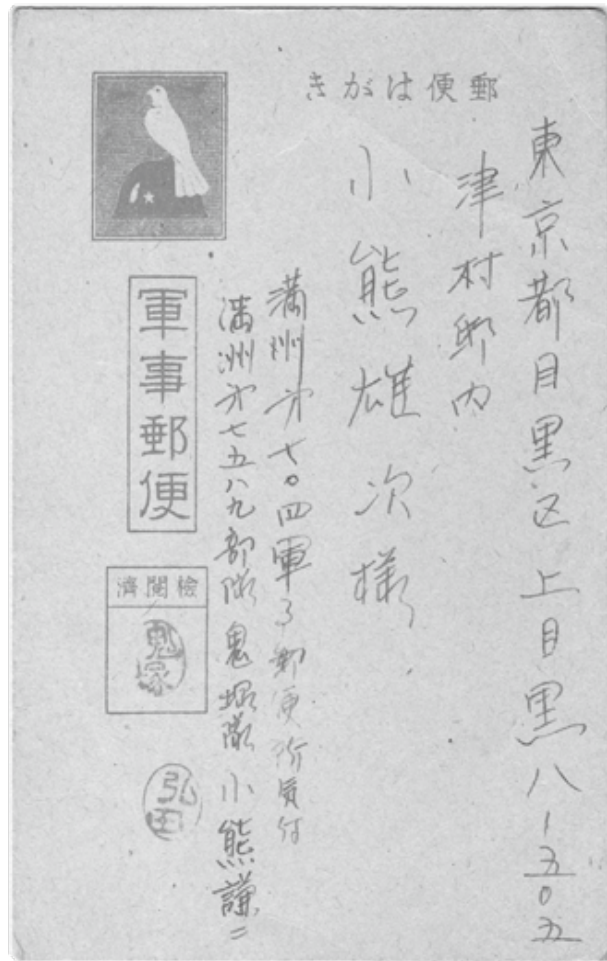 郵便はがき
東京都目黒区上目黒八ー五〇五
津村邸内
小熊雄次様
満洲第七〇四軍事郵便所気付
満洲第七五八九部隊鬼塚隊小熊謙二
軍事郵便
檢閲濟
鬼塚
弘田